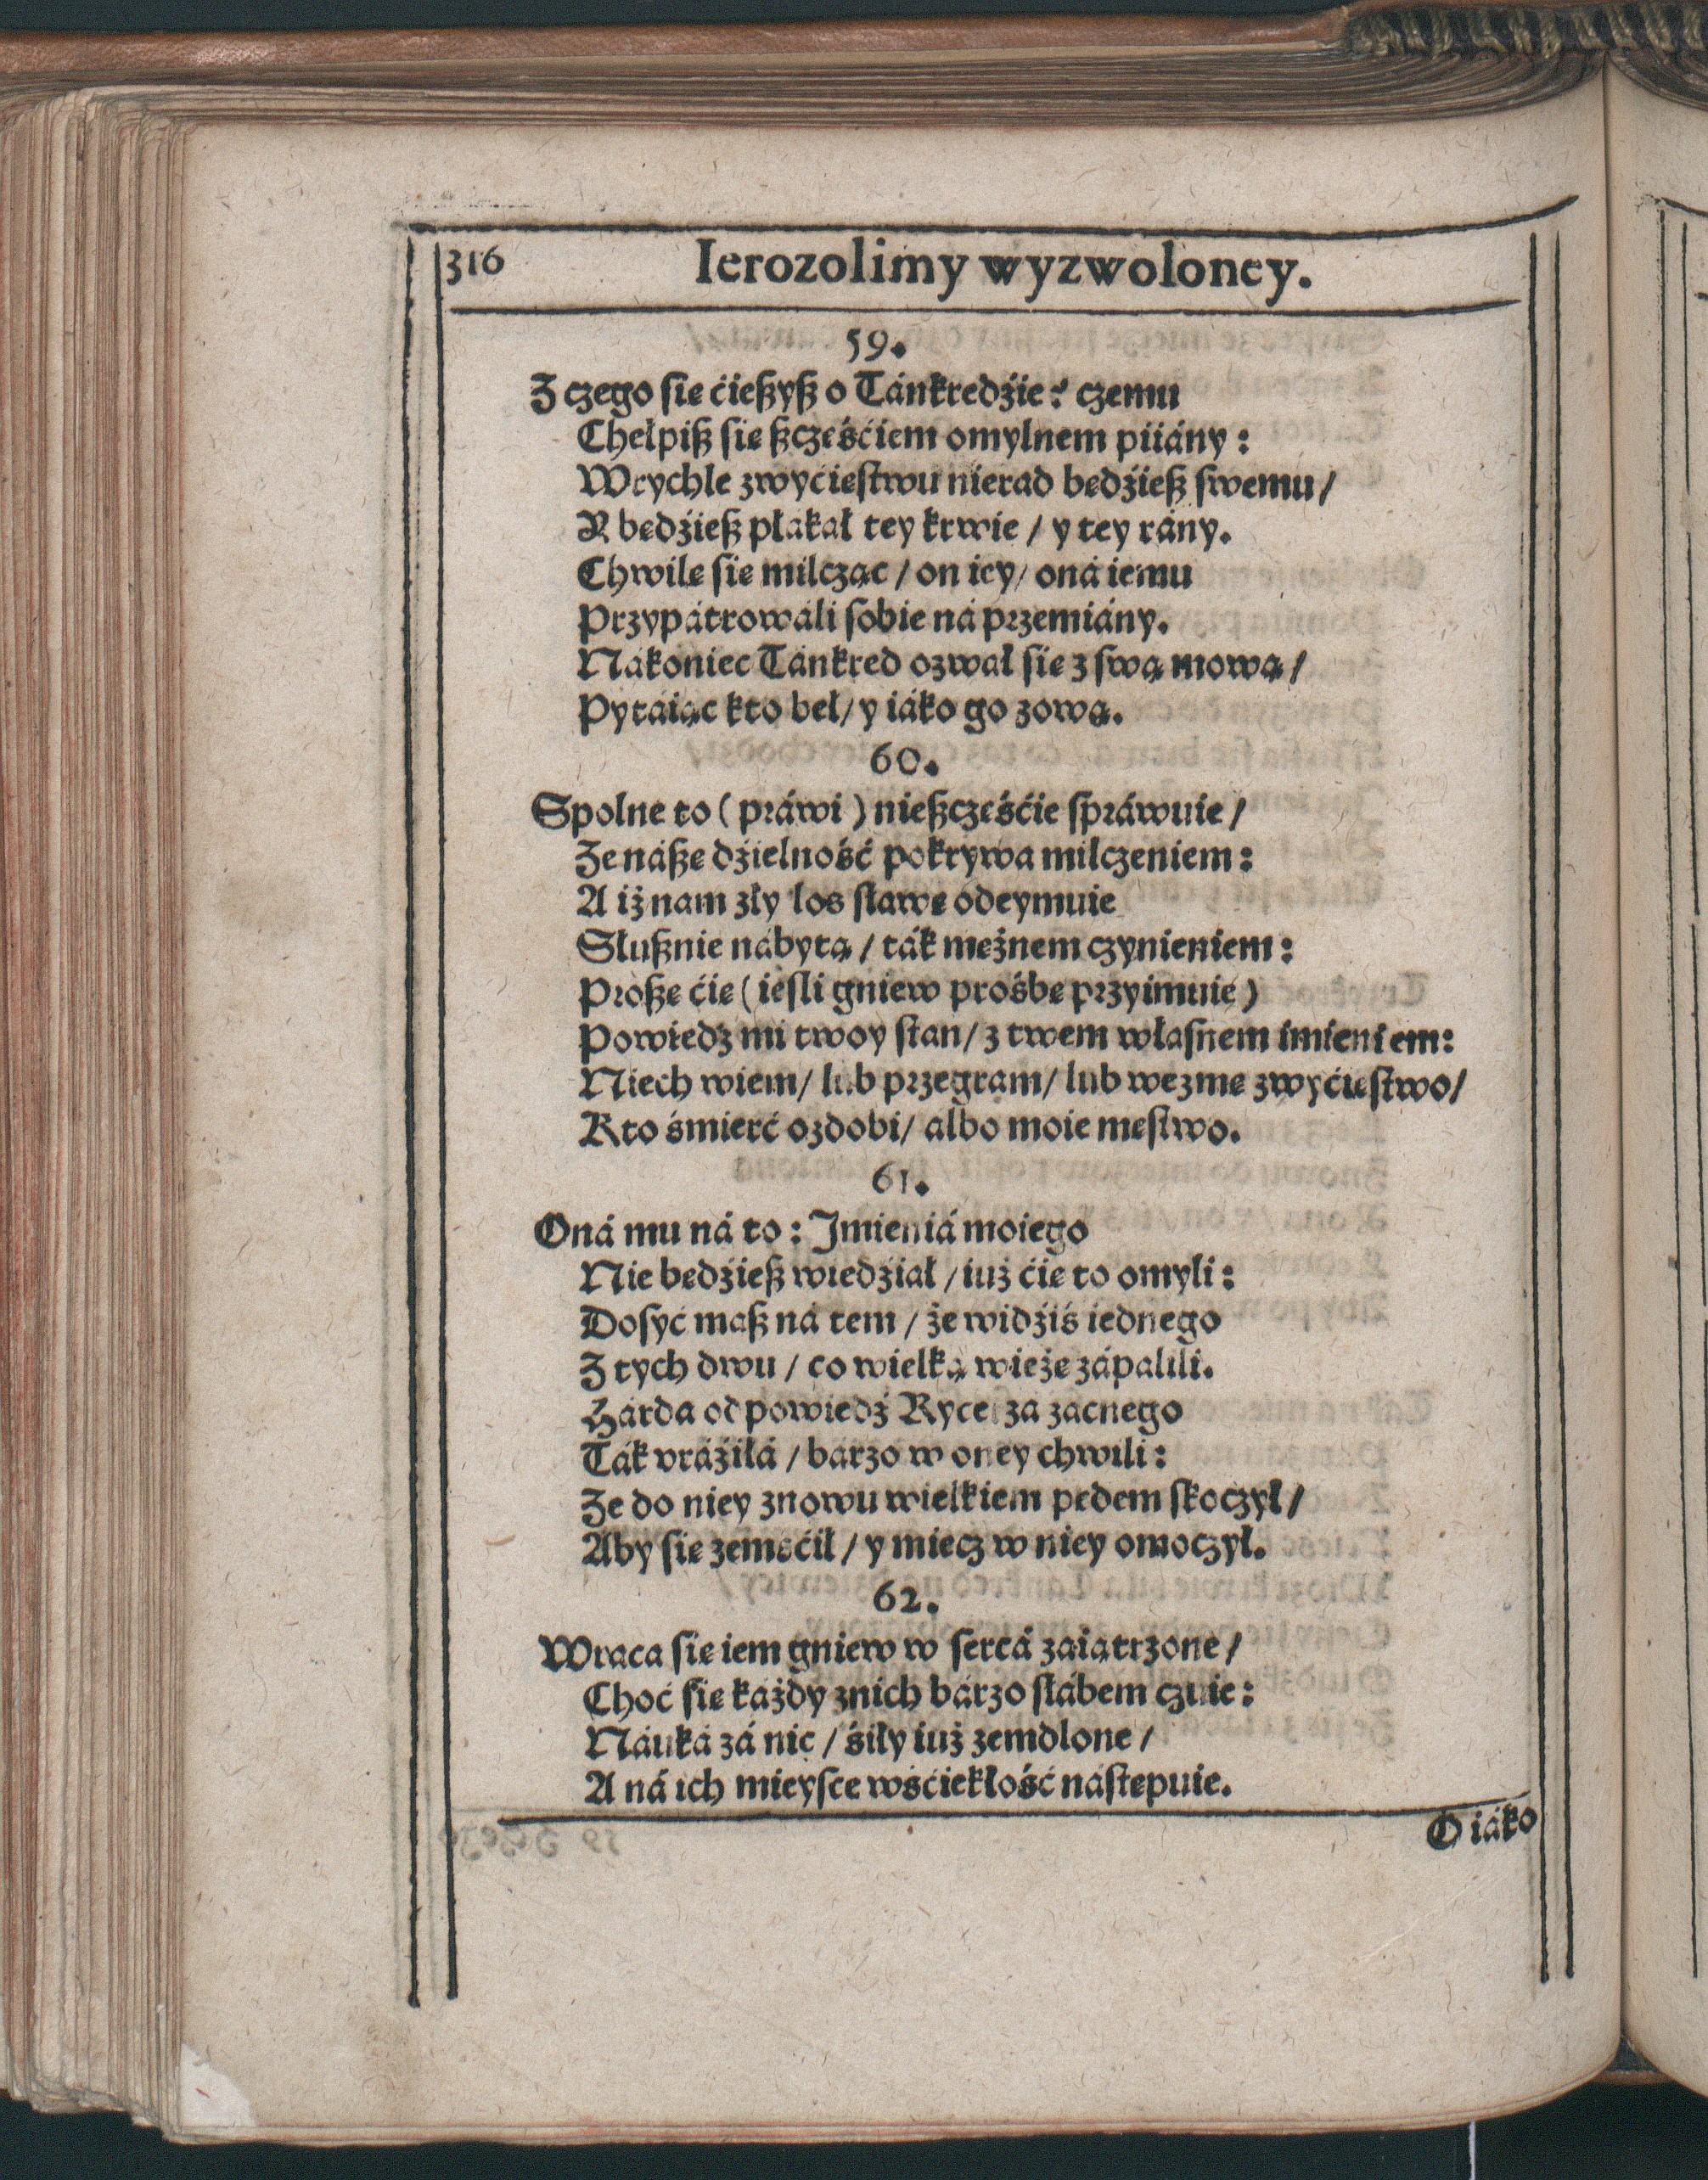 316 Ierozolimy wyzwoloney.
59.
Z czego się ćießyß o Tánkredźie? czemu
Chełpiß się ßczęśćiem omylnem piiány:
Wrychle zwyćięstwu nierad będźieß swemu/
A będźieß płakał tey krwie / y tey rány.
Chwilę się milcząc / on iey/ oná iemu
Przypátrowáli sobie ná przemiány.
Nákoniec Tánkred ozwał się z swą mową/
Pytáiąc kto beł/ y iáko go zową.
60.
Spolne to ( práwi ) nießczęśćie spráwuie /
Że náßę dźielność pokrywa milczeniem:
A iż nam zły los sławę odeymuie
Słußnie nábytą / ták mężnem czynieniem:
Proßę ćię ( iesli gniew prośbę przyimuie )
Powiedz mi twoy stan/ z twem własnem imieniem:
Niech wiem/ lub przegram/ lub wezmę zwyćięstwo/
Kto śmierć ozdobi/ albo moie męstwo.
61.
Oná mu ná to: Imieniá moiego
Nie będźieß wiedźiał / iuż ćię to omyli:
Dosyć maß ná tem / że widźiś iednego
Z tych dwu / co wielką wieżę zápalili.
Hárda odpowiedź Rycerza zacnego
Ták vráźiłá / bárzo w oney chwili:
Że do niey znowu wielkiem pędem skoczył/
Aby się zemśćił / y miecz w niey omoczył.
62.
Wraca się iem gniew w sercá zaiątrzone /
Choć się każdy z nich bárzo słábem czuie:
Náuká zá nic / śiły iuż zemdlone /
A ná ich mieysce wśćiekłość nástępuie.
O iáko